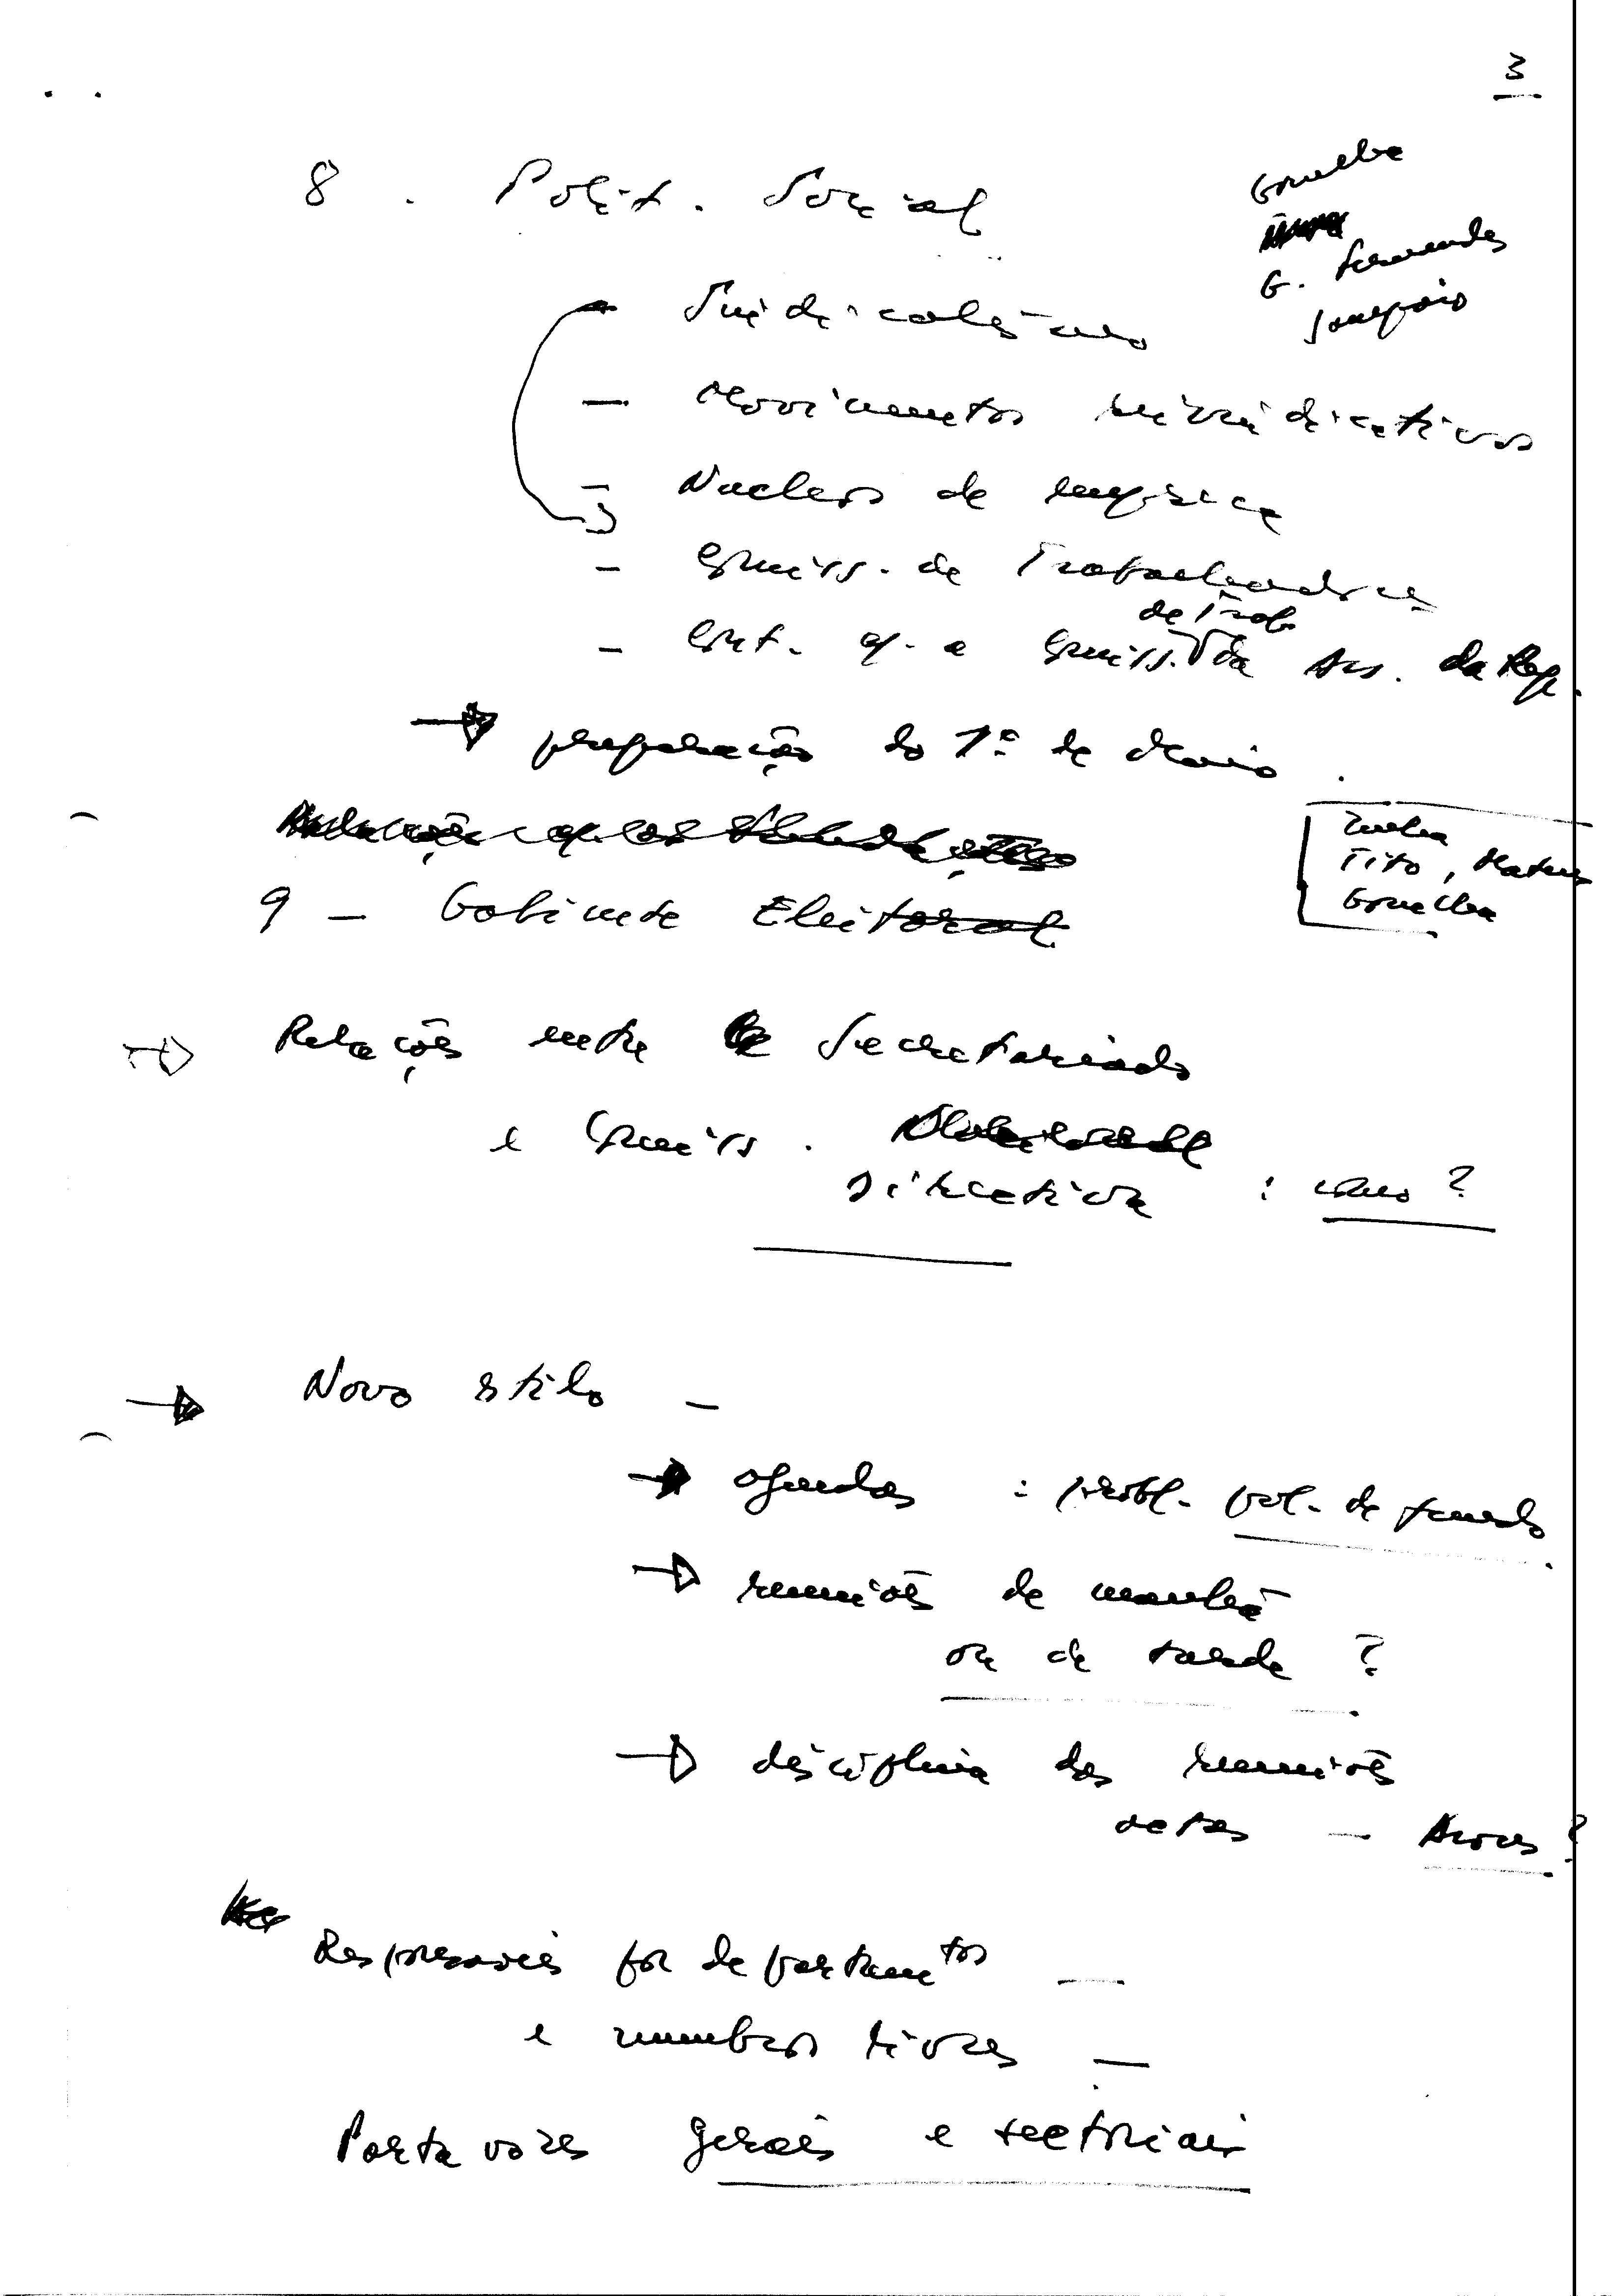 3
8 . Polit. Social
Gouveia
G. Fernandes
Sampaio
- Sindicalismo
- Movimentos reivindicativos
- Nucleos de empresa
- Comiss. de Trabalhadores
- Cont. c/. a Comiss. de Trab da Ass. da Rep.
→ preparação do 1º de Maio .
Tito, Mateus
9 - Gabinete Eleitoral
→ Relações entre Secretariado
e Comiss.
Directiva : como ?
→ Novo estilo -
→ agendas : probl. pol. de fundo
→ reuniões de manhã
ou de tarde ?
→ disciplina das reuniões
actas - Aires ?
Responsáveis por departamentos -
e membros livres -
Porta vozes gerais e sectoriais